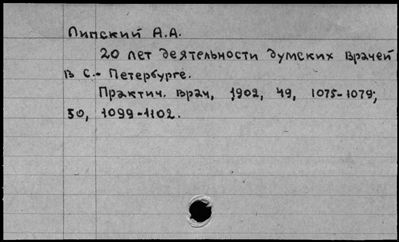 Липский А.А.
20 лет деятельности думских врачей
в С.-Петербурге.
Практич. врач, 1902, 49, 1075-1079;
50, 1099-1102.